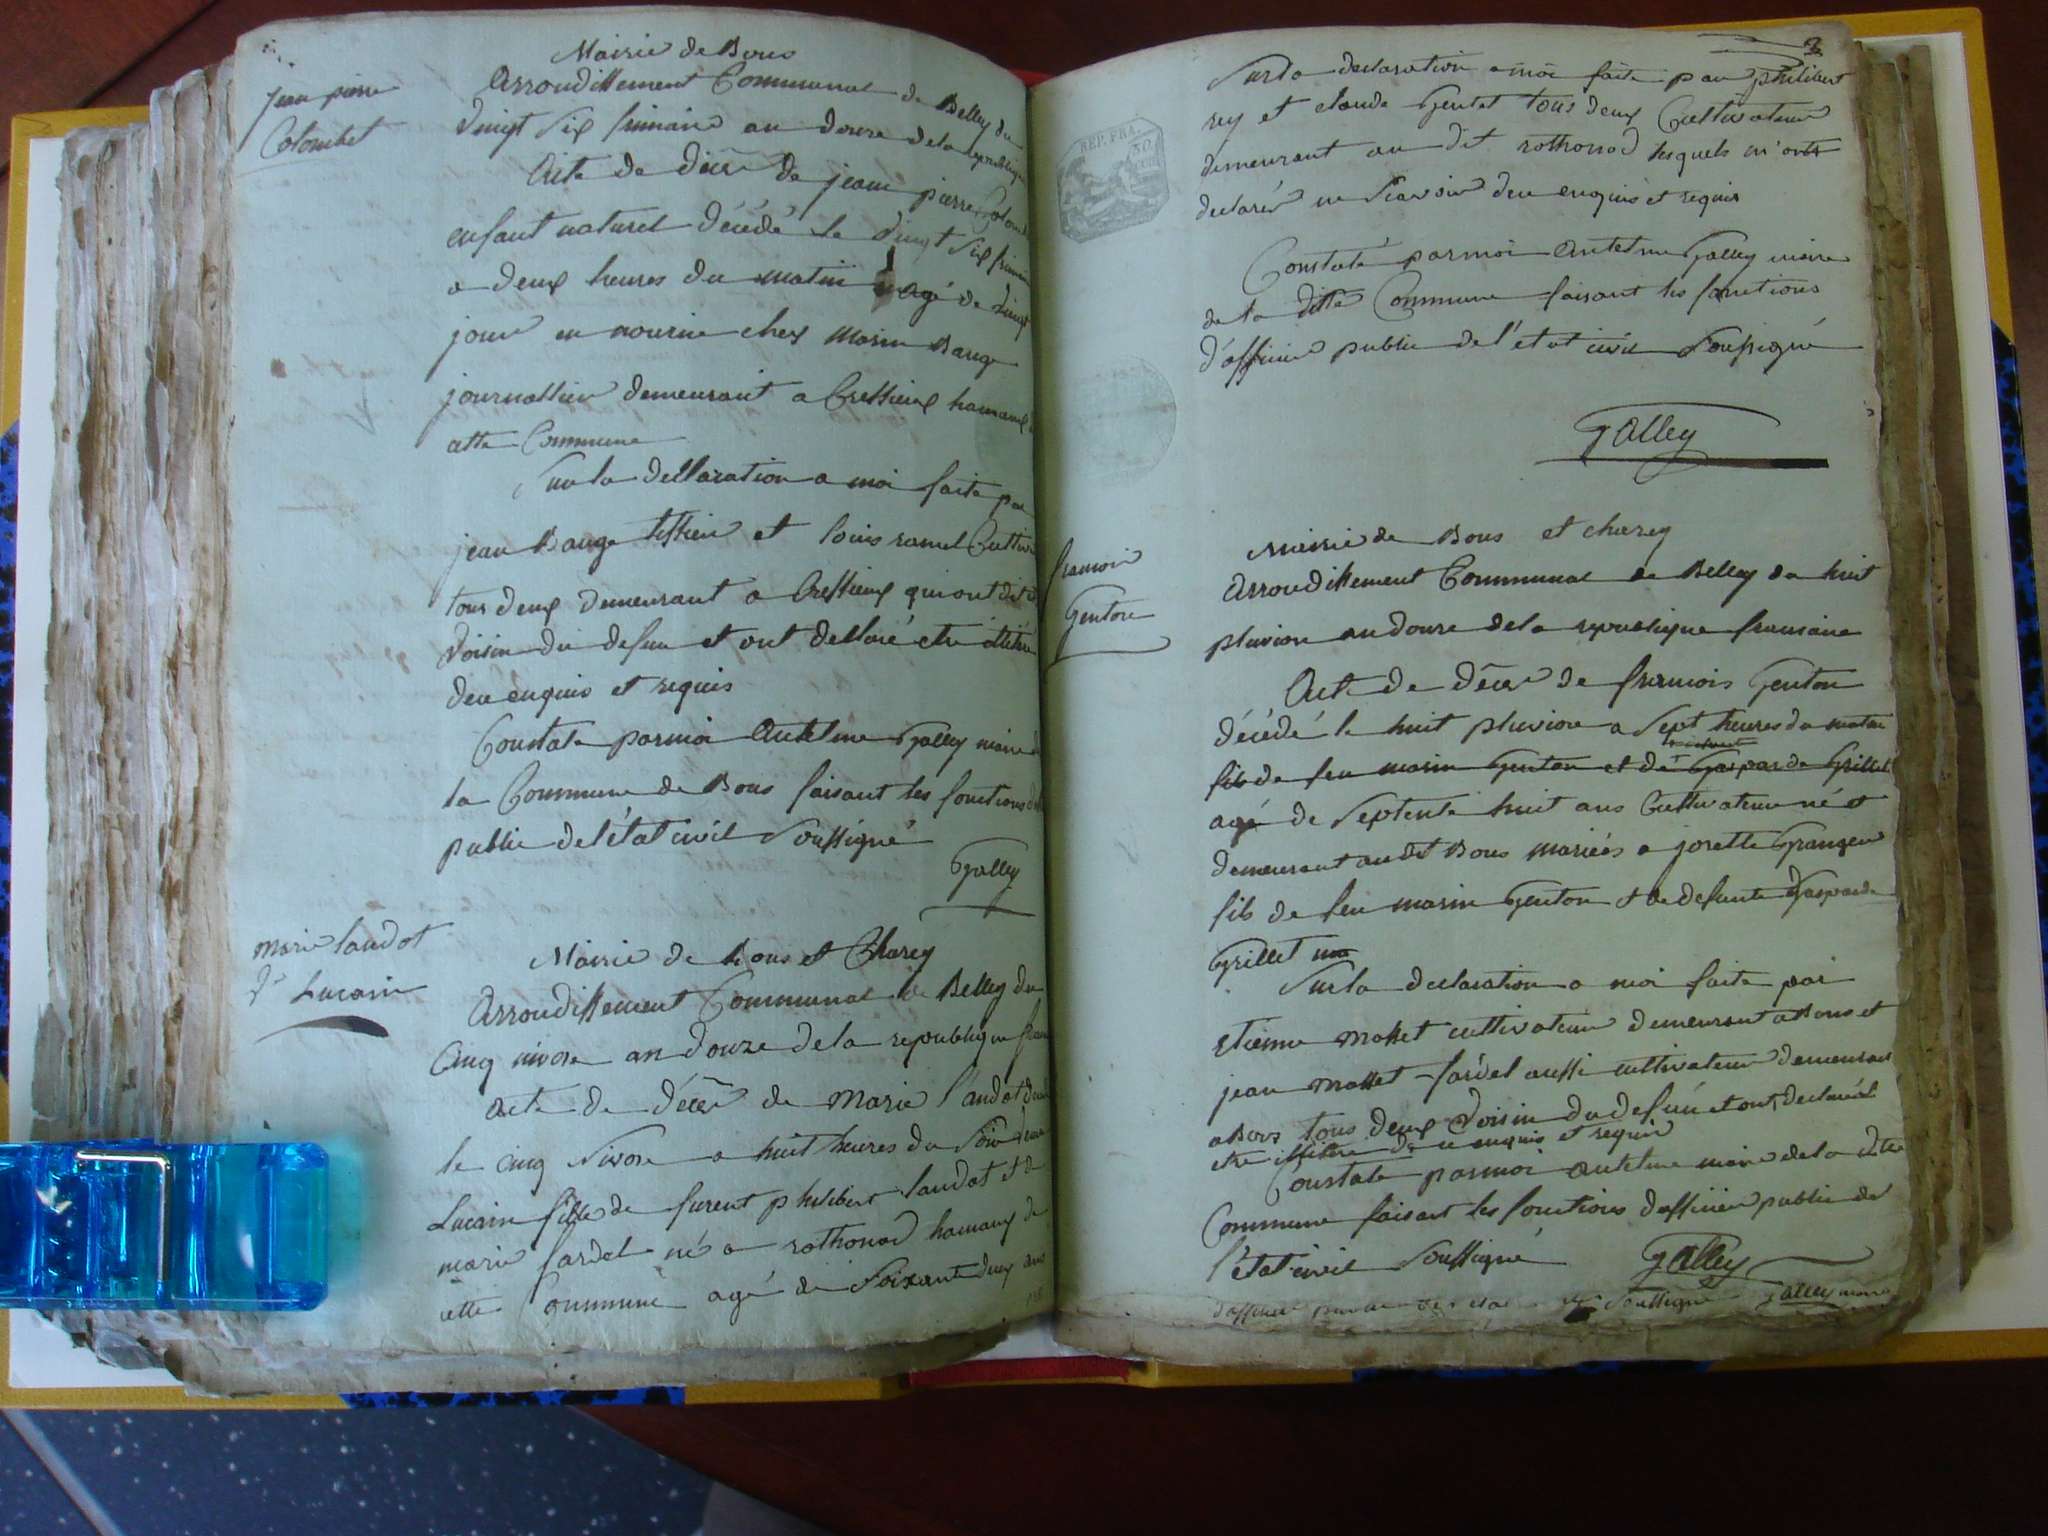 Mairie de Bons
jean pierre
Colombet
Arrondissement Communal de Belley du
vingt six frimaire an douze de la republique
Acte de décès de jean pierre Colom
enfant naturel décédé le vingt six frimaire
a deux heures du matin agé de vingt
jour en nourice chez marin Bauge
journallier demeurant a Cressieux hamaux
cette Commune
Sur la dellaration a moi faite par
jean Bauge tissier et louis ramel Cultiv
tous deux demeurant a Cressieux qui ont dit
voisin du defun et ont dellaré etre
de ce enquis et requis
Constate par moi Antelme Galley maire de
la Commune de Bons faisant les fonctions
public de l'état civil soussigné
Galley
marie laudot
Lucain
Mairie de Bons et Charey
Arrondissement Communal de Belley du
Cinq nivose an douze de la republique
acte de décès de Marie laudot
le cinq nivose a huit heures du soir
Lucain fille de furent philibert laudot et de
marie fardel né a rothonod hamaux de
cette Commune agé de soixante deux ans
3
Sur la declaration a moi faite par philibert
rey et claude Gentet tous deux Cultivateur
demeurant au dit rothonod lesquels m'ont
declarés ne scavoir de ce enquis et requis
REP. FRA.
50
Constaté par moi antelme Galley maire
de la ditte Commune faisant les fonctions
d'officier public de l'etat civil soussigné
Galley
francois
Genton
Mairie de Bons et charey
Arrondissement Communal de Belley du huit
pluviose an douze de la republique francaise
Acte de décès de francois Genton
décédé le huit pluviose a sept heures du matin
fils de feu marin Genton et de Gasparde Grillet
agé de septente huit ans Cultivateur né et
demeurant au dit Bons mariées a josette Grangeur
fils de feu marin Genton et de defunte Gasparde
Grillet
Sur la declaration a moi faite par
etienne mollet cultivateur demeurant a Bons et
jean mollet fardel aussi cultivateur demeurant
a Bons tous deux voisin du defun et ont declarés
etre de ce enquis et requis
Constate par moi antelme maire de la ditte
Commune faisant les fonctions d'officier public de
l'état civil soussigné Galley
d'officier soussigné Galley maire